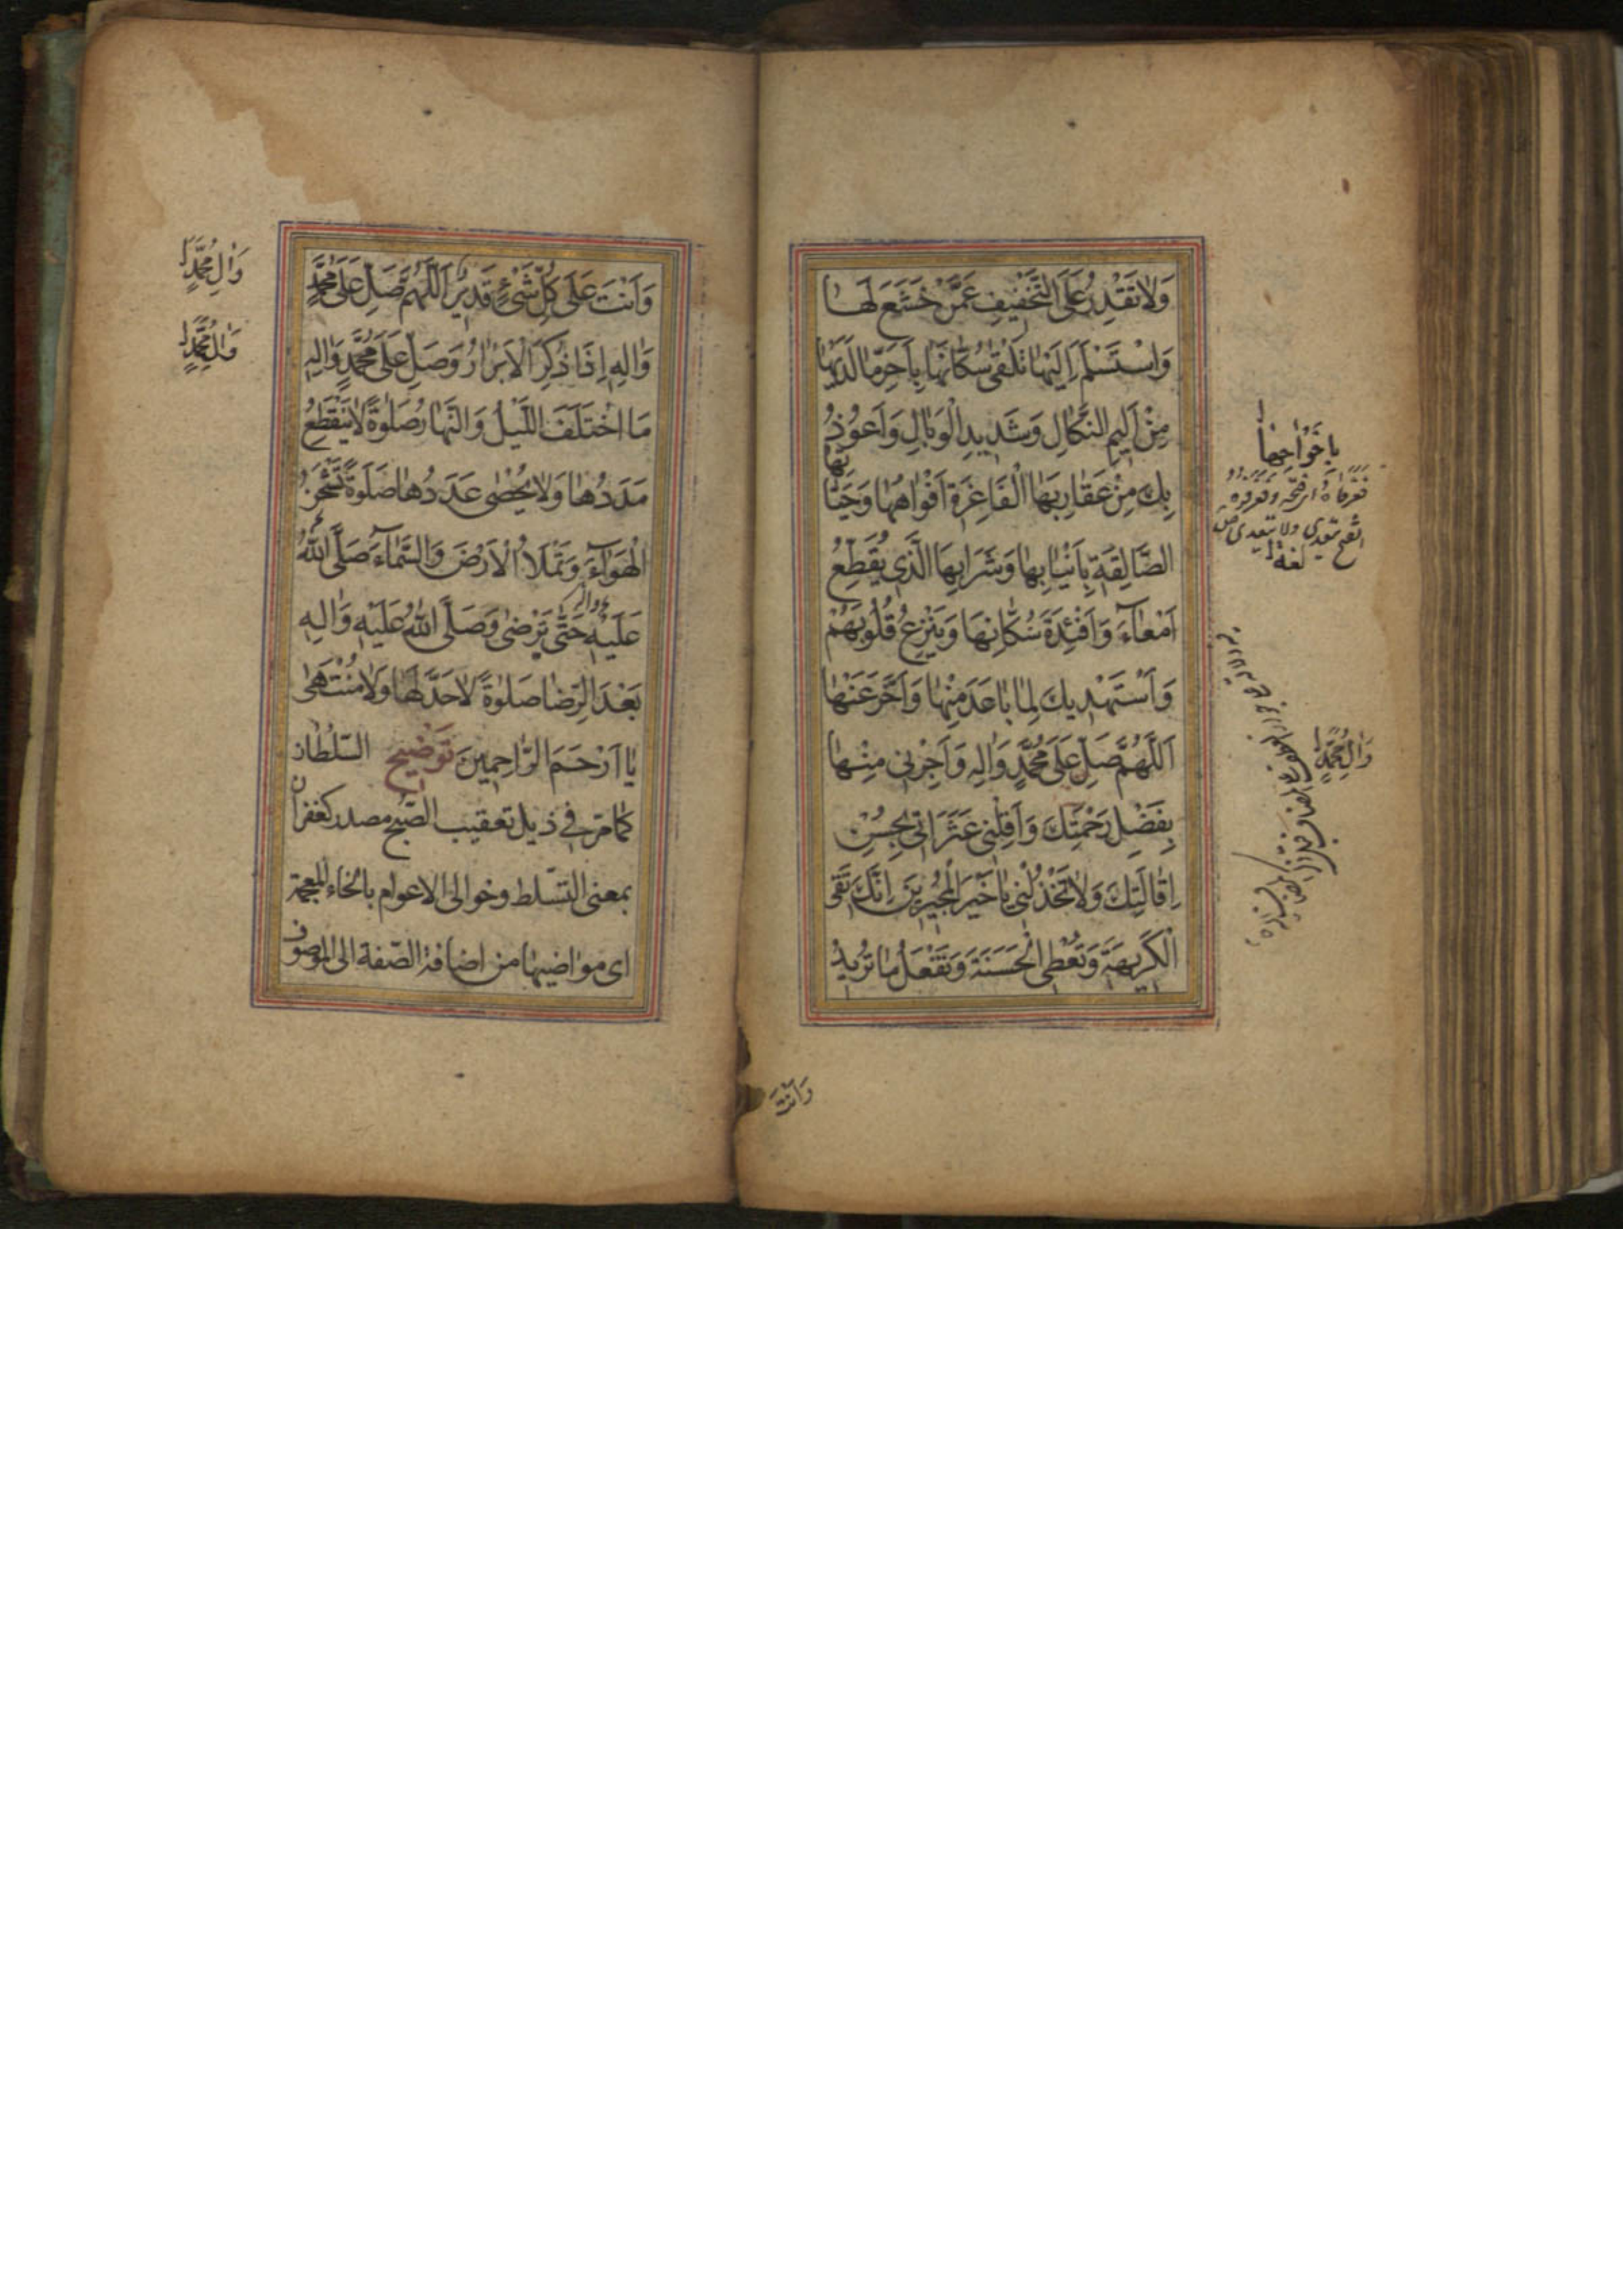 وَلَا تَقْدِرُ عَلَى التَّخْفِيفِ عَمَّنْ خَشَعَ لَهَا
وَاسْتَسْلَمَ اِلَيْهَا تَلْقَى سُكَّانَهَا بِاَحَرِّ مَا لَدَيْهَا
مِنْ اَلِيمِ النَّكَالِ وَشَدِيدِ الْوَبَالِ وَاَعُوذُ
بِكَ مِنْ عَقَارِبِهَا الْفَاغِرَةِ اَفْوَاهُهَا وَحَيَّاتِهَا
الصَّالِقَةِ بِاَنْيَابِهَا وَشَرَابِهَا الَّذِي يُقَطِّعُ
اَمْعَاءَ وَاَفْئِدَةَ سُكَّانِهَا وَيَنْزِعُ قُلُوبَهُمْ
وَاَسْتَهْدِيكَ لِمَا بَاعَدَ مِنْهَا وَاَخَّرَ عَنْهَا
اَللّٰهُمَّ صَلِّ عَلَى مُحَمَّدٍ وَاٰلِهِ وَاَجِرْنِي مِنْهَا
بِفَضْلِ رَحْمَتِكَ وَاَقِلْنِي عَثَرَاتِي بِحُسْنِ
اِقَالَتِكَ وَلَا تَخْذُلْنِي يَا خَيْرَ الْمُجِيرِينَ اِنَّكَ تَقِي
الْكَرِيهَةَ وَتُعْطِي الْحَسَنَةَ وَتَفْعَلُ مَا تُرِيدُ
وَاٰلِ مُحَمَّدٍ
وَاَنْتَ
وَاَنْتَ عَلَى كُلِّ شَيْءٍ قَدِيرٌ اَللّٰهُمَّ صَلِّ عَلَى مُحَمَّدٍ
وَاٰلِهِ اِذَا ذُكِرَ الْاَبْرَارُ وَصَلِّ عَلَى مُحَمَّدٍ وَاٰلِهِ
مَا اخْتَلَفَ اللَّيْلُ وَالنَّهَارُ صَلٰوةً لَا يَنْقَطِعُ
مَدَدُهَا وَلَا يُحْصٰى عَدَدُهَا صَلٰوةً تَشْحَنُ
الْهَوَاءَ وَتَمْلَاُ الْاَرْضَ وَالسَّمَاءَ صَلَّى اللّٰهُ
عَلَيْهِ حَتَّى يَرْضٰى وَصَلَّى اللّٰهُ عَلَيْهِ وَاٰلِهِ
بَعْدَ الرِّضَا صَلٰوةً لَا حَدَّ لَهَا وَلَا مُنْتَهٰى
يَا اَرْحَمَ الرَّاحِمِينَ تَوْضِيح السّلطان
كما مرّ في ذيل تعقيب الصّبح مصدر كغفران
بمعنى التسّلط وخوالى الاعوام بالخاء المعجمة
اى مواضيها من اضافة الصّفة الى الموصوف
وَاٰلِ مُحَمَّدٍ
وَاٰلِ مُحَمَّدٍ